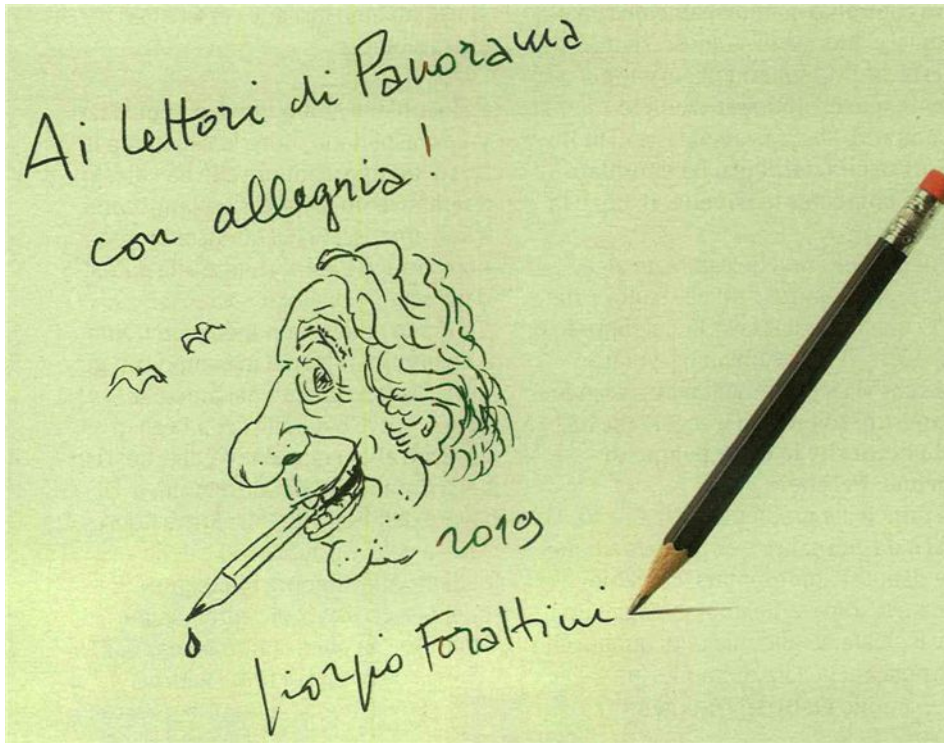 Ai lettori di Panorama
con allegria!
2019
Giorgio Forattini